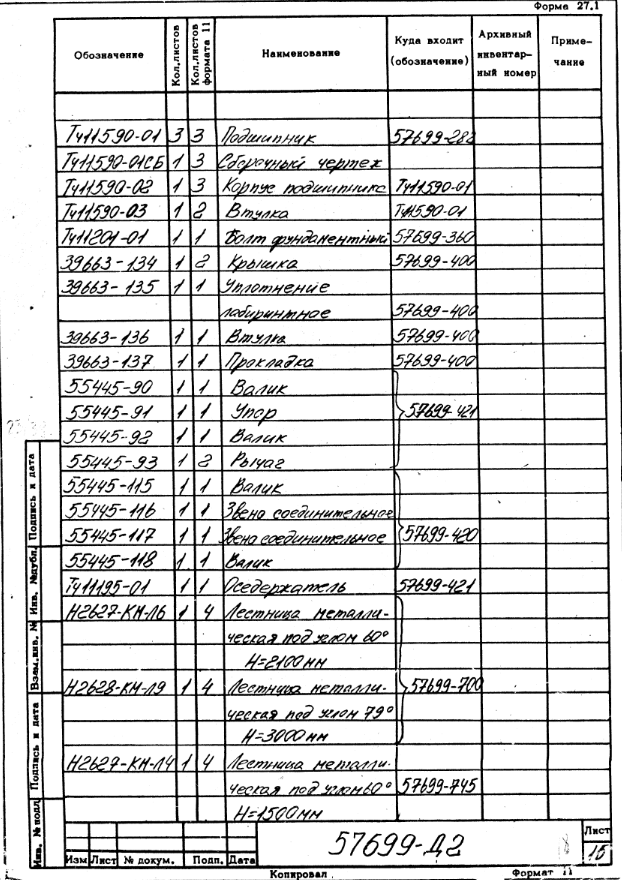 Форма 27.1
Обозначение Кол.листов Кол.листов формата 11 Наименование Куда входит (обозначение) Архивный инвентар-ный номер Приме-чание
Тч11590-01 3 3 Подшипник 57699-282
Тч11590-01СБ 1 3 Сборочный чертеж
Тч11590-02 1 3 Корпус подшипника Тч11590-01
Тч11590-03 1 2 Втулка Тч11590-01
Тч11201-01 1 1 Болт фундаментный 57699-360
39663-134 1 2 Крышка 57699-400
39663-135 1 1 Уплотнение
лабиринтное 57699-400
39663-136 1 1 Втулка 57699-400
39663-137 1 1 Прокладка 57699-400
55445-90 1 1 Валик
55445-91 1 1 Упор 57699-421
55445-92 1 1 Валик
55445-93 1 2 Рычаг
55445-115 1 1 Валик
55445-116 1 1 Звено соединительное
55445-117 1 1 Звено соединительное 57699-420
55445-118 1 1 Валик
Тч11195-01 1 1 Оседержатель 57699-421
Н2627-КМ-Л6 1 4 Лестница металли-
ческая под углом 60°
Н=2100мм
Н2628-КМ-Л9 1 4 Лестница металли- 57699-700
ческая под углом 79°
Н=3000мм
Н2627-КМ-Л4 1 4 Лестница металли-
ческая под углом 60° 57699-745
Н=1500мм
Инв. № подл Подпись и дата Взам.инв. № Инв. №дубл. Подпись и дата
57699-Д2
18
Лист
15
Изм Лист № докум. Подп. Дата
Копировал Формат 11